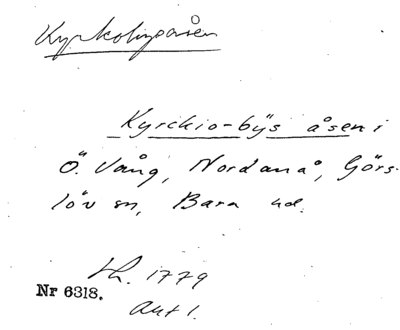 Kyrkobyåsen
Kyrckio-bÿs åsen i
Ö. Vång, Nordanå, Görs-
löv sn, Bara hd.
Lh. 1779
Nr 6318.
akt 1.